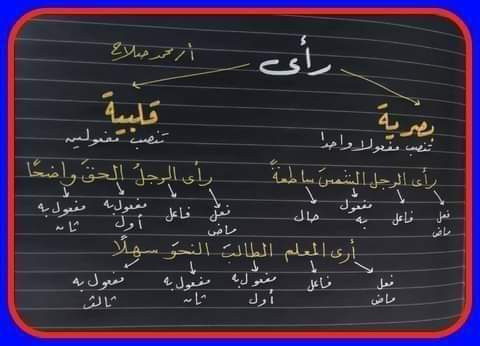 رأى
أ/ محمد صلاح
بصرية
تنصب مفعولا واحدا
قلبية
تنصب مفعولين
رأى الرجل الشمسَ ساطعةً
فعل ماض
فاعل
مفعول به
حال
رأى الرجلُ الحقَ واضحًا
فعل ماض
فاعل
مفعول به أول
مفعول به ثان
أرى المعلم الطالبَ النحوَ سهلًا
فعل ماض
فاعل
مفعول به أول
مفعول به ثان
مفعول به ثالث